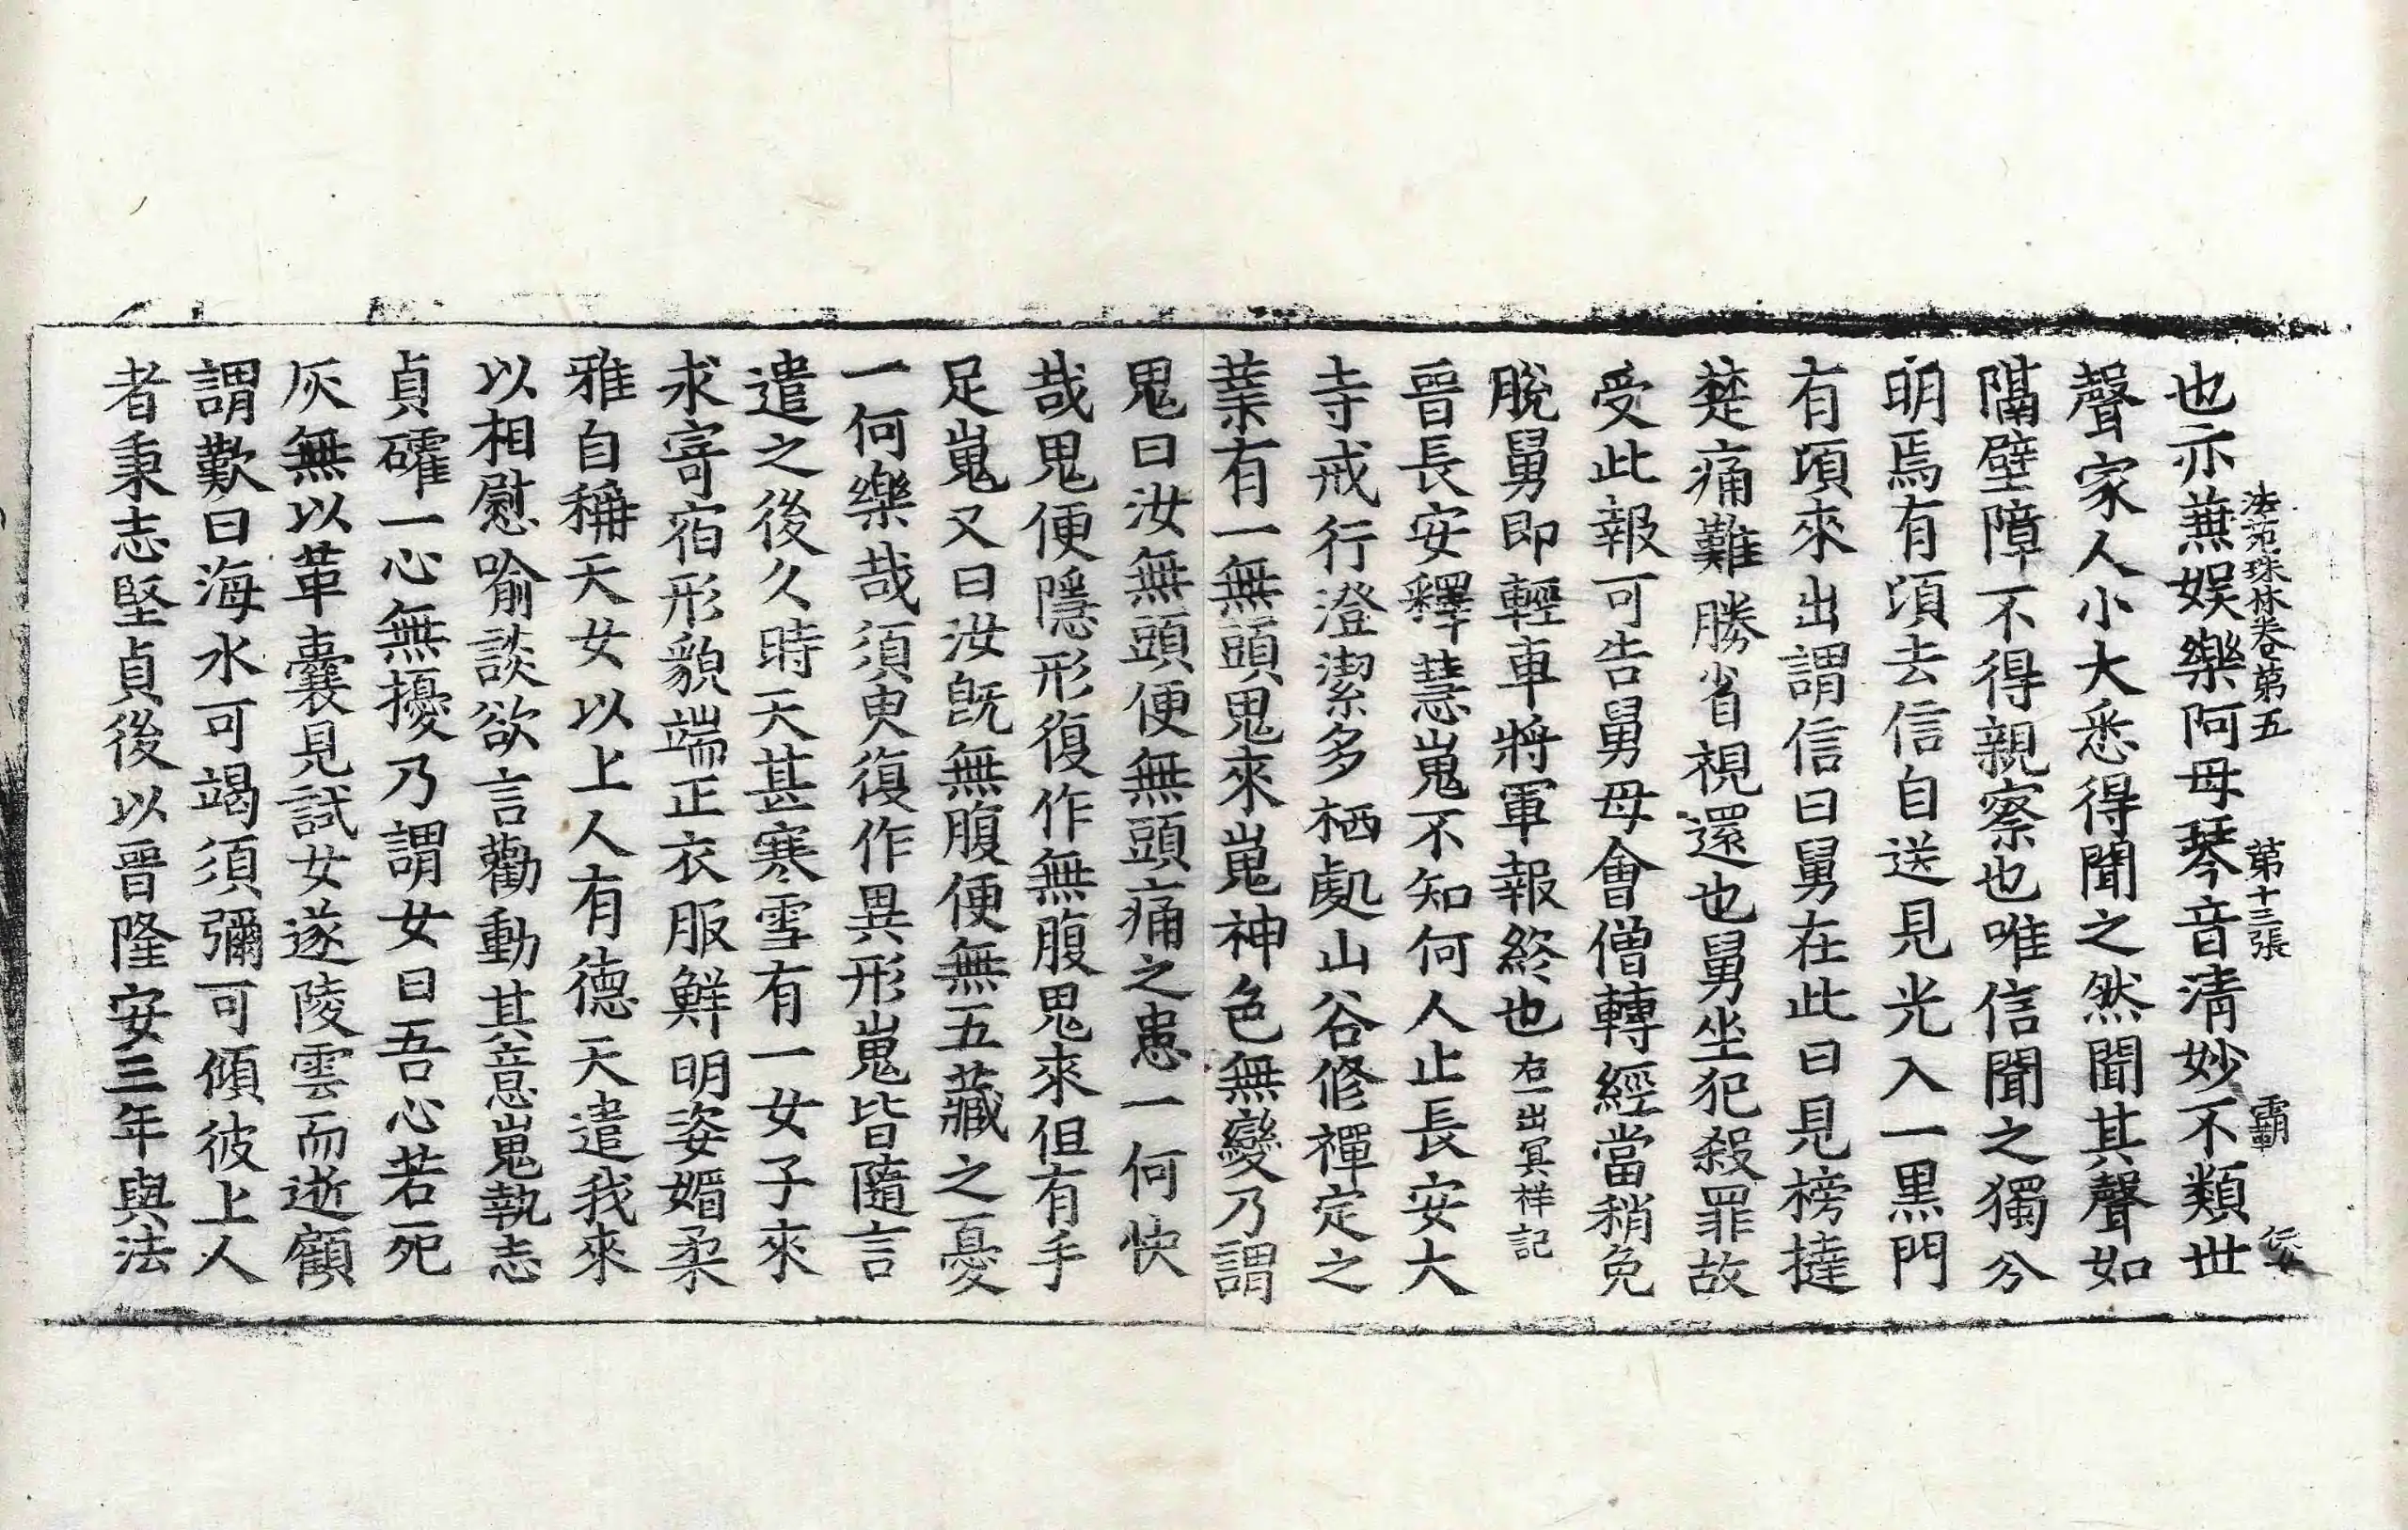 法苑珠林卷第五　第十三張　霸
也亦無娛樂阿母琴音清妙不類世
聲家人小大悉得聞之然聞其聲如
隔壁障不得親察也唯信聞之獨分
明焉有頃去信自送見光入一黑門
有頃來出謂信曰舅在此日見榜撻
楚痛難勝省視還也舅坐犯殺罪故
受此報可告舅母會僧轉經當稍免
脫舅即輕車將軍報終也右一出冥祥記
晉長安釋慧嵬不知何人止長安大
寺戒行澄潔多栖處山谷修禪定之
業有一無頭鬼來嵬神色無變乃謂
鬼曰汝無頭便無頭痛之患一何快
哉鬼便隱形復作無腹鬼來但有手
足嵬又曰汝旣無腹便無五藏之憂
一何樂哉須臾復作異形嵬皆隨言
遣之後久時天甚寒雪有一女子來
求寄宿形貌端正衣服鮮明姿媚柔
雅自稱天女以上人有德天遣我來
以相慰喻談欲言勸動其意嵬執志
貞確一心無擾乃謂女曰吾心若死
灰無以革囊見試女遂陵雲而逝顧
謂歎曰海水可竭須彌可傾彼上人
者秉志堅貞後以晉隆安三年與法